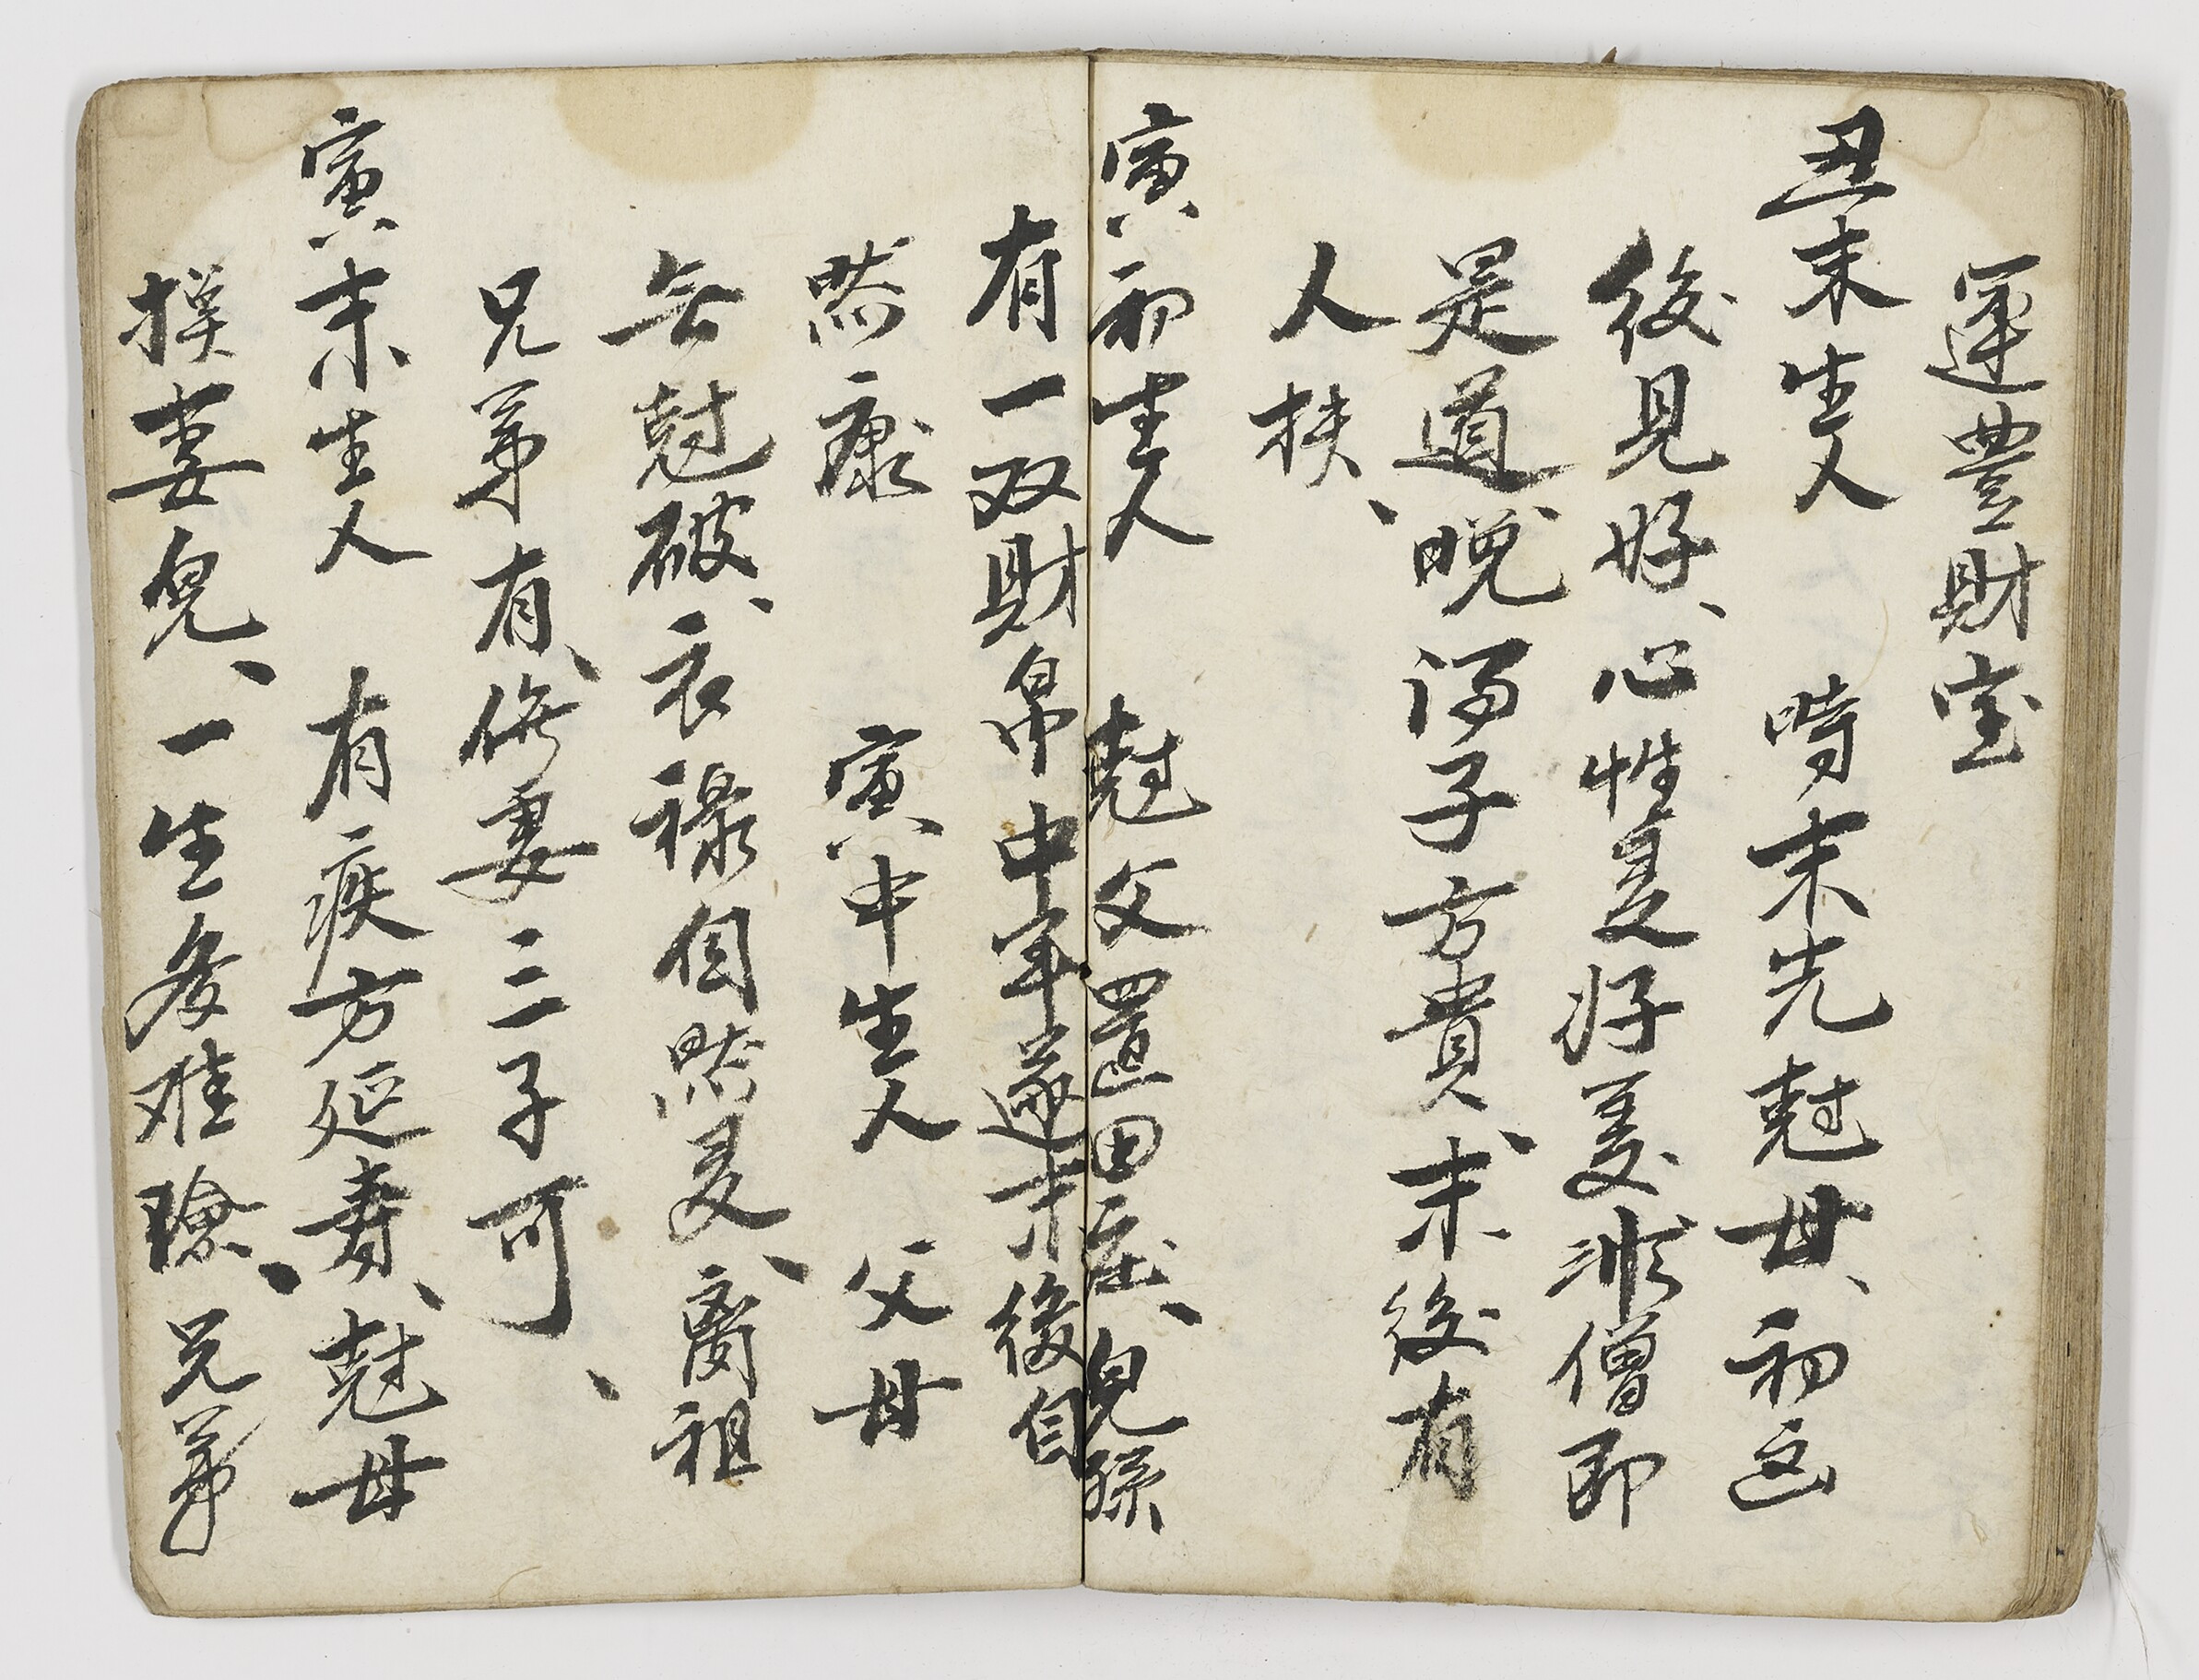 運豊財宝
丑末生人 時末先尅母、初凶
後見好、心性是好是非僧即
是道、晚得子方貴、末後有
人扶、
寅初生人 尅父置田庄、兒孫
有一双財帛中年遂末後自
然康 寅中生人 父母
无尅破、衣禄自然是、离祖
兄弟有、傷妻三子可、
寅末生人 有疾方延壽、尅母
損妻兒、一生多难險、兄弟